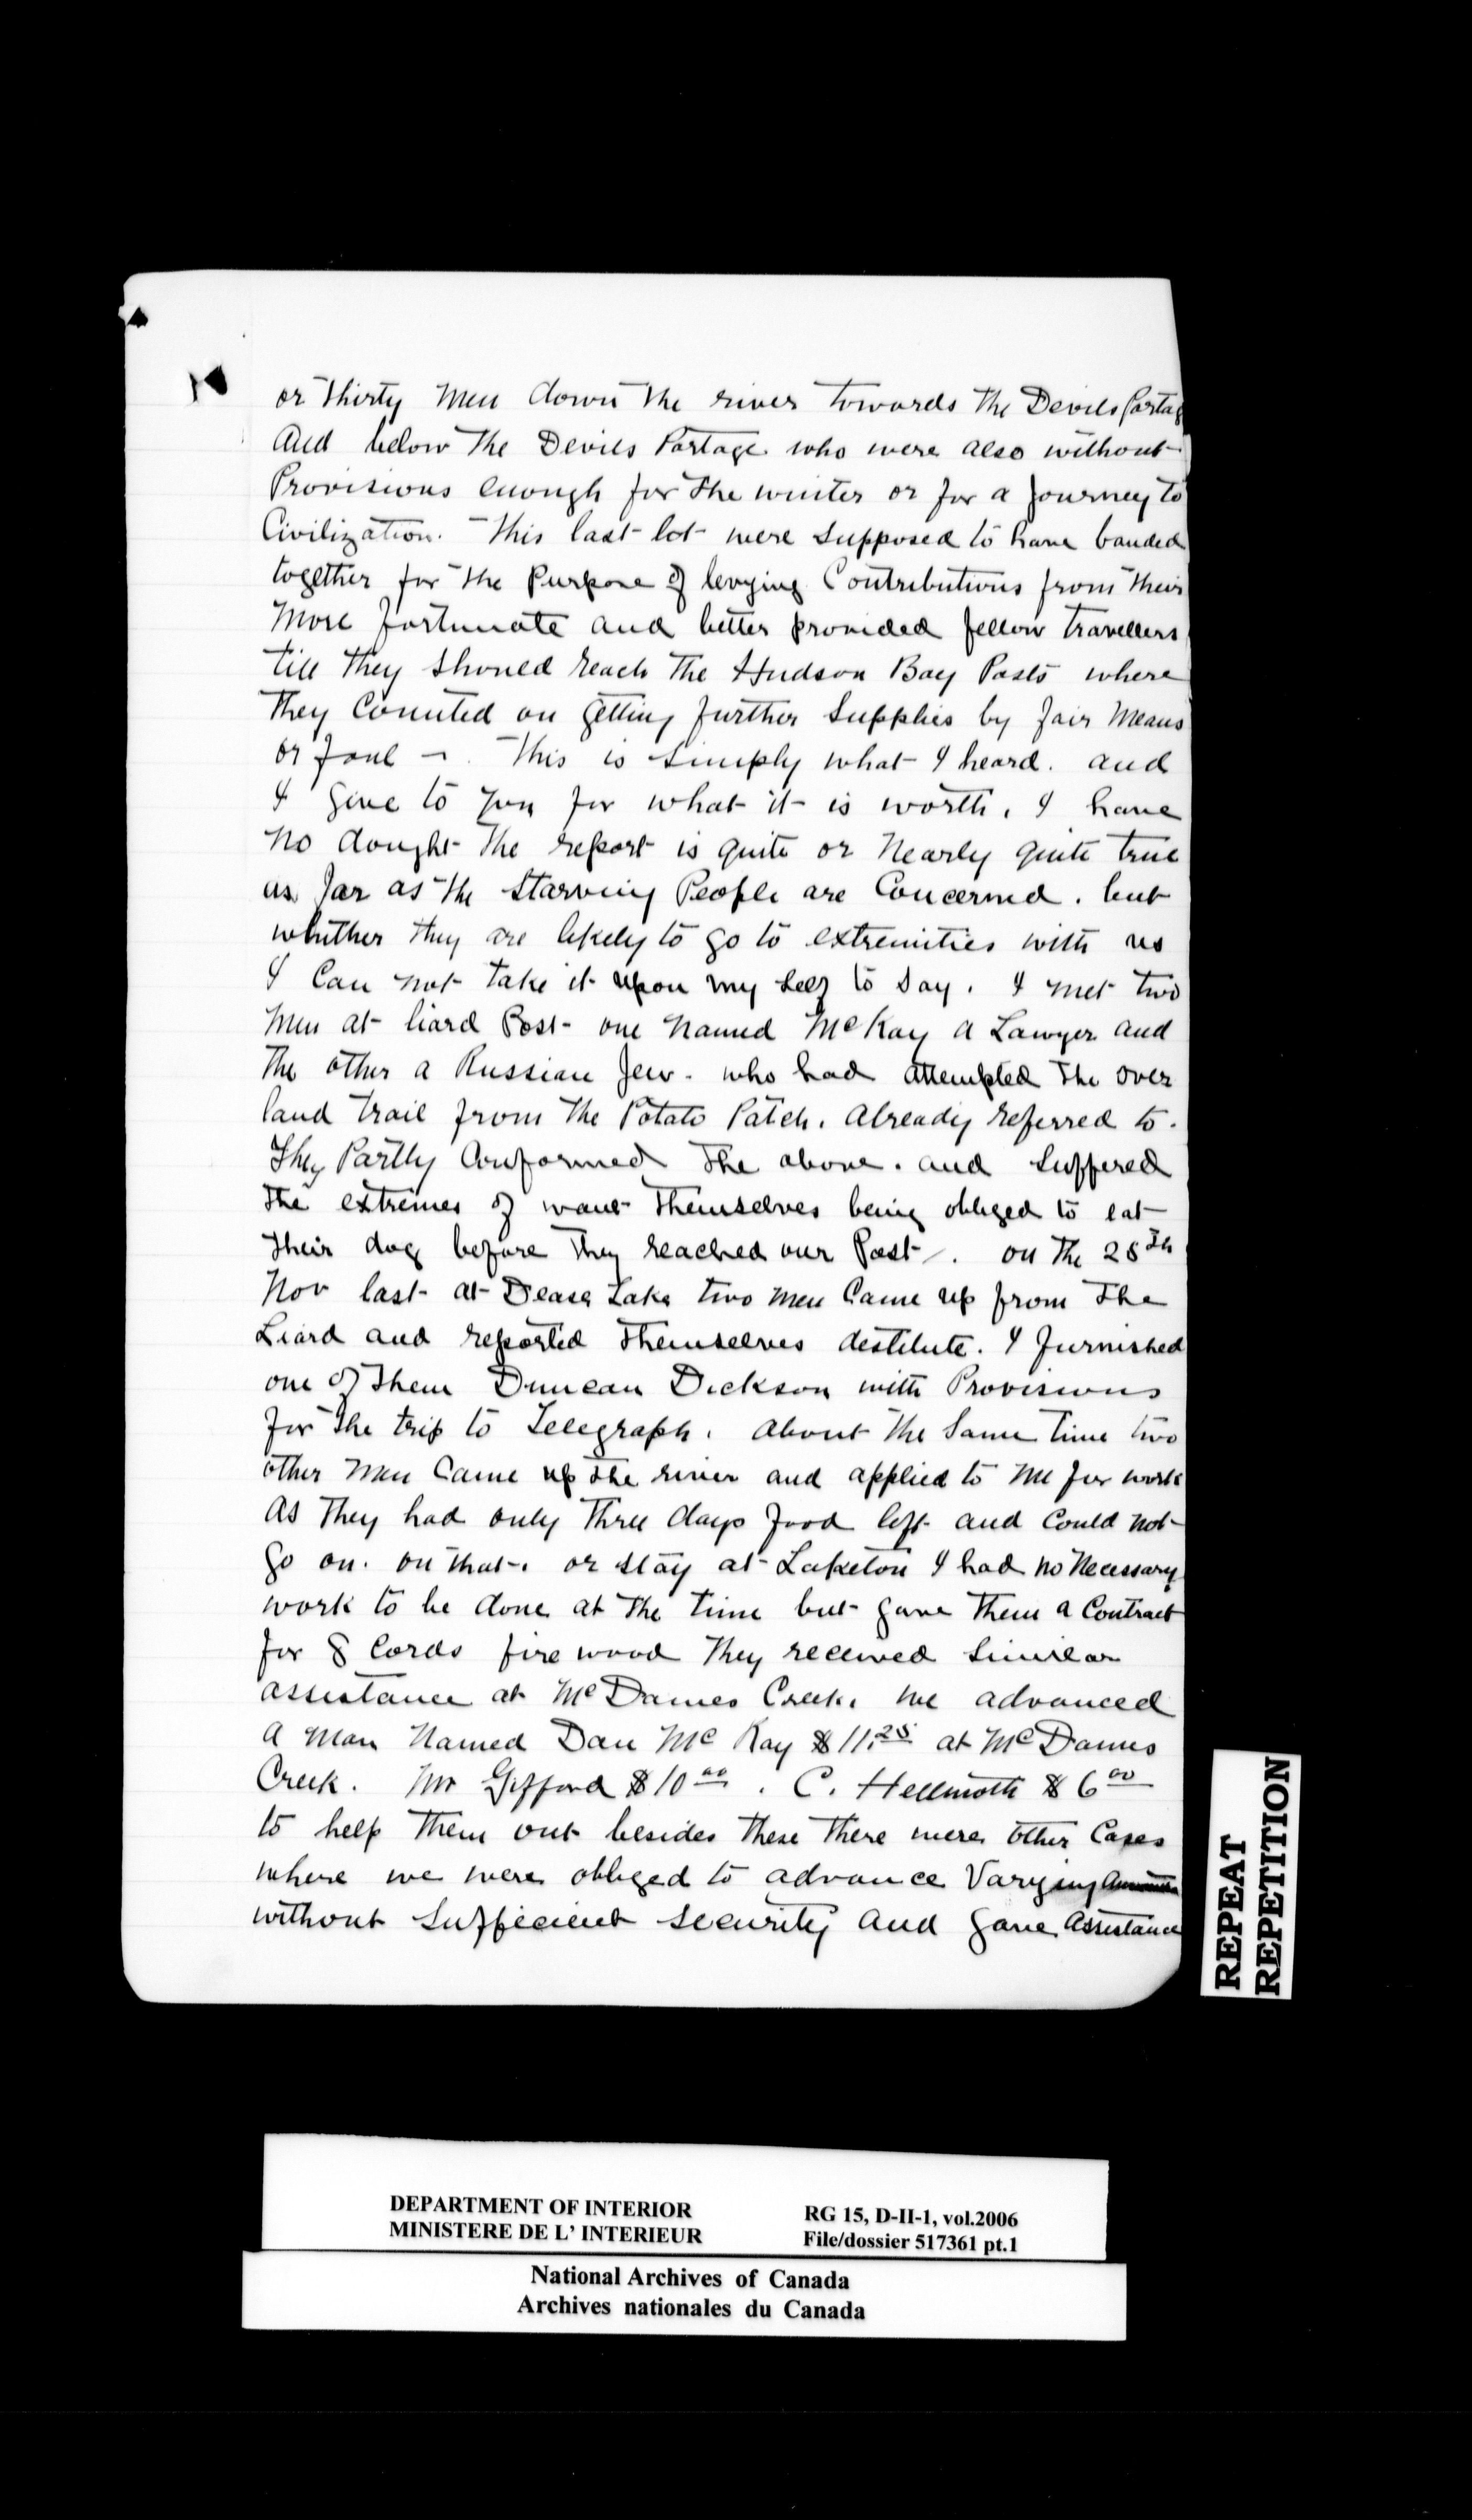 or thirty men down the river towards the Devils Portag
And below the Devils Portage who were also without
Provisions enough for the winter or for a journey to
Civilization. This last lot were supposed to have banded
together for the Purpose of levying Contributions from their
more fortunate and better provided fellow travellers
till they should reach the Hudson Bay Posts where
they counted on getting further Supplies by fair means
or foul -. This is simply what I heard. and
I give to you for what it is worth, I have
no dought the report is quite or nearly quite true
as far as the starving People are Concerned. but
whither they are likely to go to extremities with us
I Can not take it upon my self to say. I met two
men at liard Post one named McKay a Lawyer and
the other a Russian Jew. who had attempted the over
land trail from the Potato Patch. Already referred to.
They Partly Conformed the above. and suffered
the extremes of want themselves being obliged to eat
their dog before they reached our Post. on the 28th
Nov last at Dease Lake two men Came up from the
Liard and reported themselves destitute. I furnished
one of them Duncan Dickson with Provisions
for the trip to Telegraph. About the same time two
other men Came up the river and applied to me for work
as they had only three days food left and could not
go on. on that. or stay at Laketon I had no necessary
work to be done at the time but gave them a Contract
for 8 Cords fire wood they received similar
assistance at McDames Creek. we advanced
a man named Dan McKay $11.25 at McDames
Creek. Mr Gifford $10 00. C. Hellmoth $6 00
to help them out besides these there were other Cases
where we were obliged to advance Varying Amounts
without sufficient security and gave Assistance
REPEAT
REPETITION
DEPARTMENT OF INTERIOR RG 15, D-II-1, vol.2006
MINISTERE DE L' INTERIEUR File/dossier 517361 pt.1
National Archives of Canada
Archives nationales du Canada